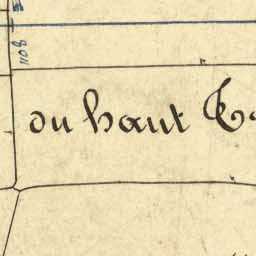 1108
du haut